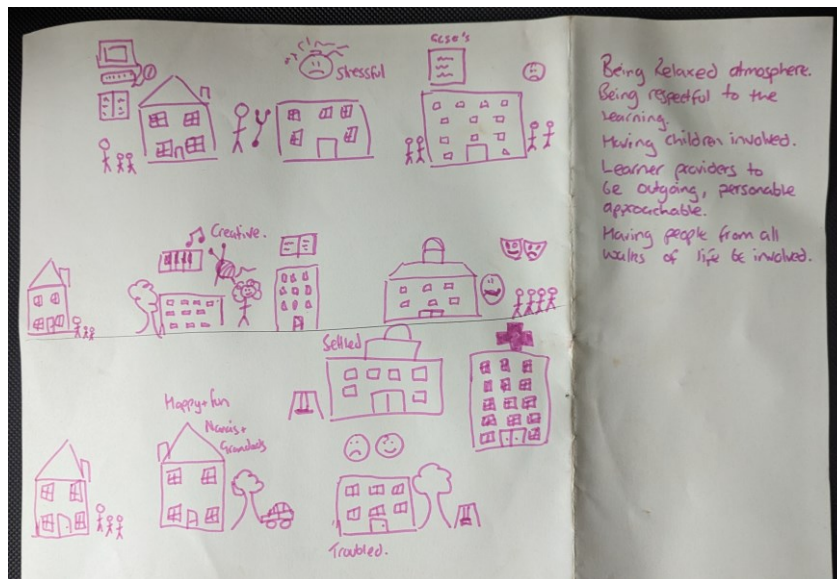 GCSE's
Stressful
Creative.
Settled
Happy + fun
Nana's +
Grandads
Troubled.
Being Relaxed atmosphere.
Being respectful to the
learning.
Having children involved.
Learner providers to
be outgoing, personable
approachable.
Having people from all
walks of life be involved.